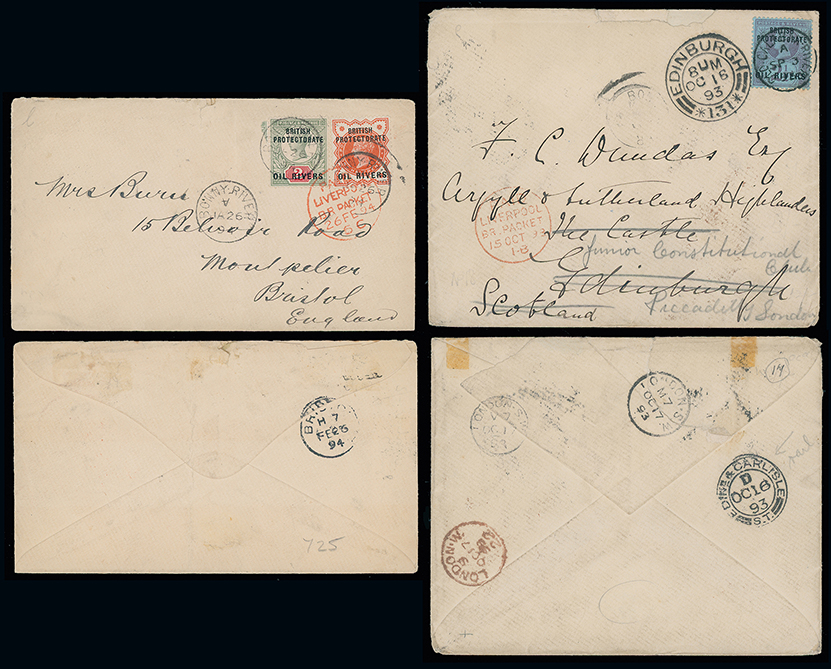 BRITISH
PROTECTORATE
OIL RIVERS
BRITISH
PROTECTORATE
OIL RIVERS
BONNY RIVER
A
JA 26
LIVERPOOL
BR. PACKET
26 FE 94
Mrs Burn
15 Belvoir Road
Montpelier
Bristol
England
BRITISH
PROTECTORATE
OIL RIVERS
A
SP
EDINBURGH
8 UM
OC 16
93
*131*
F. C. Dundas Esq
Argyll & Sutherland Highlanders
LIVERPOOL
BR. PACKET
15 OCT 93
1·B
The Castle
Junior Constitutional
Club
Edinburgh
Piccadilly London
Scotland
H 7
FE 26
94
725
14
LONDON. S.W.
M 7
OC 17
93
LONDON. S.W.
EDINR & CARLISLE
D
OC 16
93
S.T.
LONDON. W.